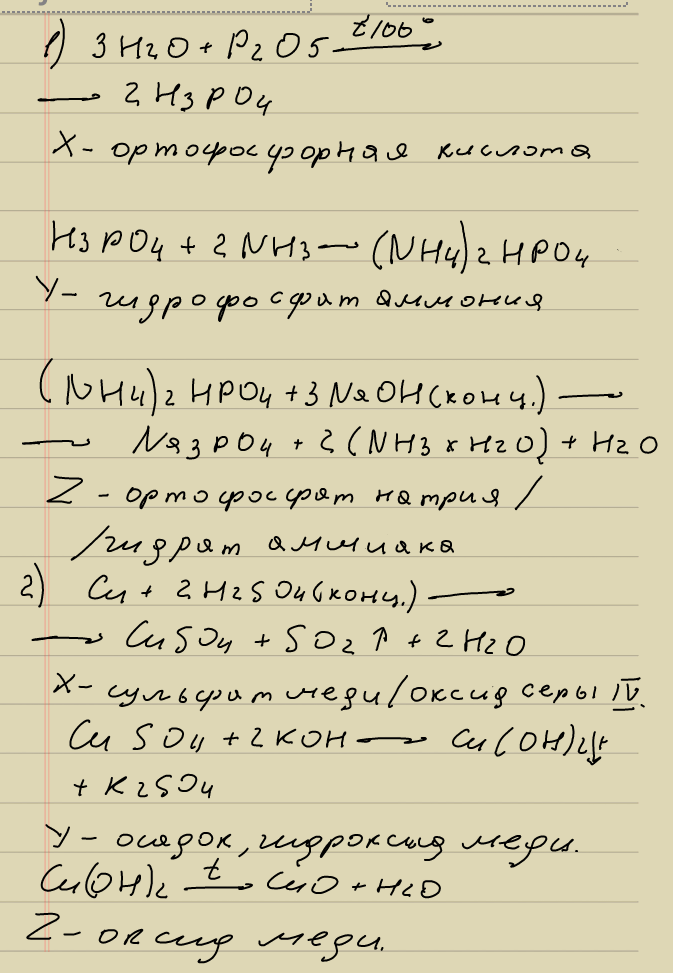 1) 3H2O + P2O5 t 100° →
→ 2H3PO4
X - ортофосфорная кислота
H3PO4 + 2NH3 → (NH4)2HPO4
Y - гидрофосфат аммония
(NH4)2HPO4 + 3NaOH(конц.) →
→ Na3PO4 + 2(NH3 × H2O) + H2O
Z - ортофосфат натрия /
/гидрат аммиака
2) Cu + 2H2SO4(конц.) →
→ CuSO4 + SO2↑ + 2H2O
X - сульфат меди/оксид серы IV.
CuSO4 + 2KOH → Cu(OH)2↓+
+ K2SO4
Y - осадок, гидроксид меди.
Cu(OH)2 t → CuO + H2O
Z - оксид меди.